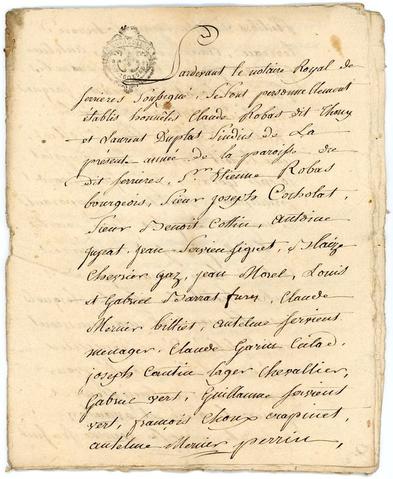 Pardevant le notaire Royal de
ferrieres soussigné, se sont personnellement
établis honnêtes Claude Robas dit
et Laurant Duplat sindics de La
presente année de la paroisse du
dit ferrieres, Sr Etienne Robas
bourgeois, Sieur joseph Cocholat,
Sieur Benoit Cottin, antoine
jean Servien signet,
Chevrier gaz, jean Morel, Louis
et Gabriel furet, Claude
Mercier billiet, antelme servient
menager, Claude Garin
joseph Coutin lager chevallier,
Gabriel vert, Guillaume servient
vert, françois Choux crapinet,
antelme Mercier perrin,